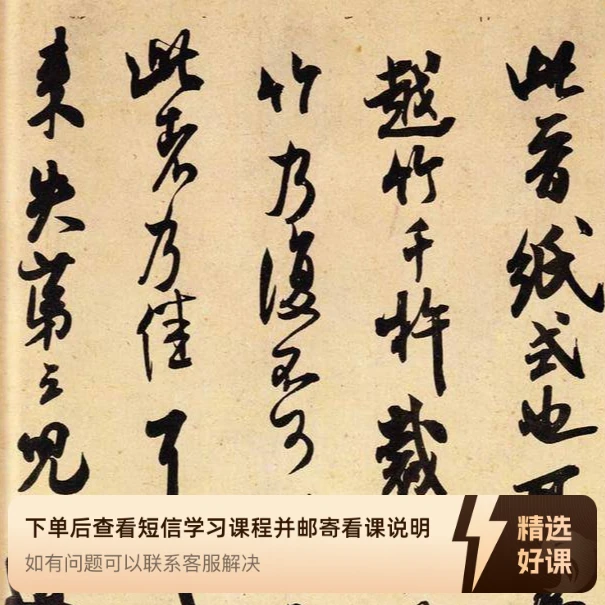 此晉紙式也可
越竹千杵裁
竹乃復不可
此者乃佳耳
来失第三児
下单后查看短信学习课程并邮寄看课说明
如有问题可以联系客服解决
精选
好课